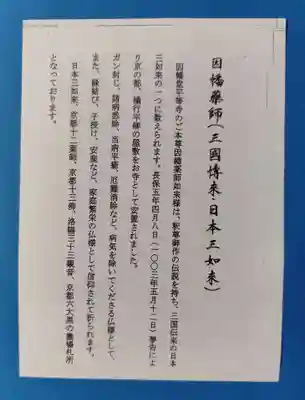 因幡薬師(三國傳来・日本三如来)
因幡堂平等寺のご本尊因幡薬師如来様は、釈尊御作の伝説を持ち、三国伝来の日本
三如来の一つに数えられます。長保五年四月八日(一〇〇三年五月十二日)夢告によ
り京の都、橘行平卿の屋敷をお寺として安置されました。
ガン封じ、諸病悉除、当病平癒、厄難消除など、病気を除いてくださる仏様として、
また、縁結び、子授け、安産など、家庭繁栄の仏様として信仰されて祈られます。
日本三如来、京都十二薬師、京都十三佛、洛陽三十三観音、京都六大黒の霊場札所
となっております。